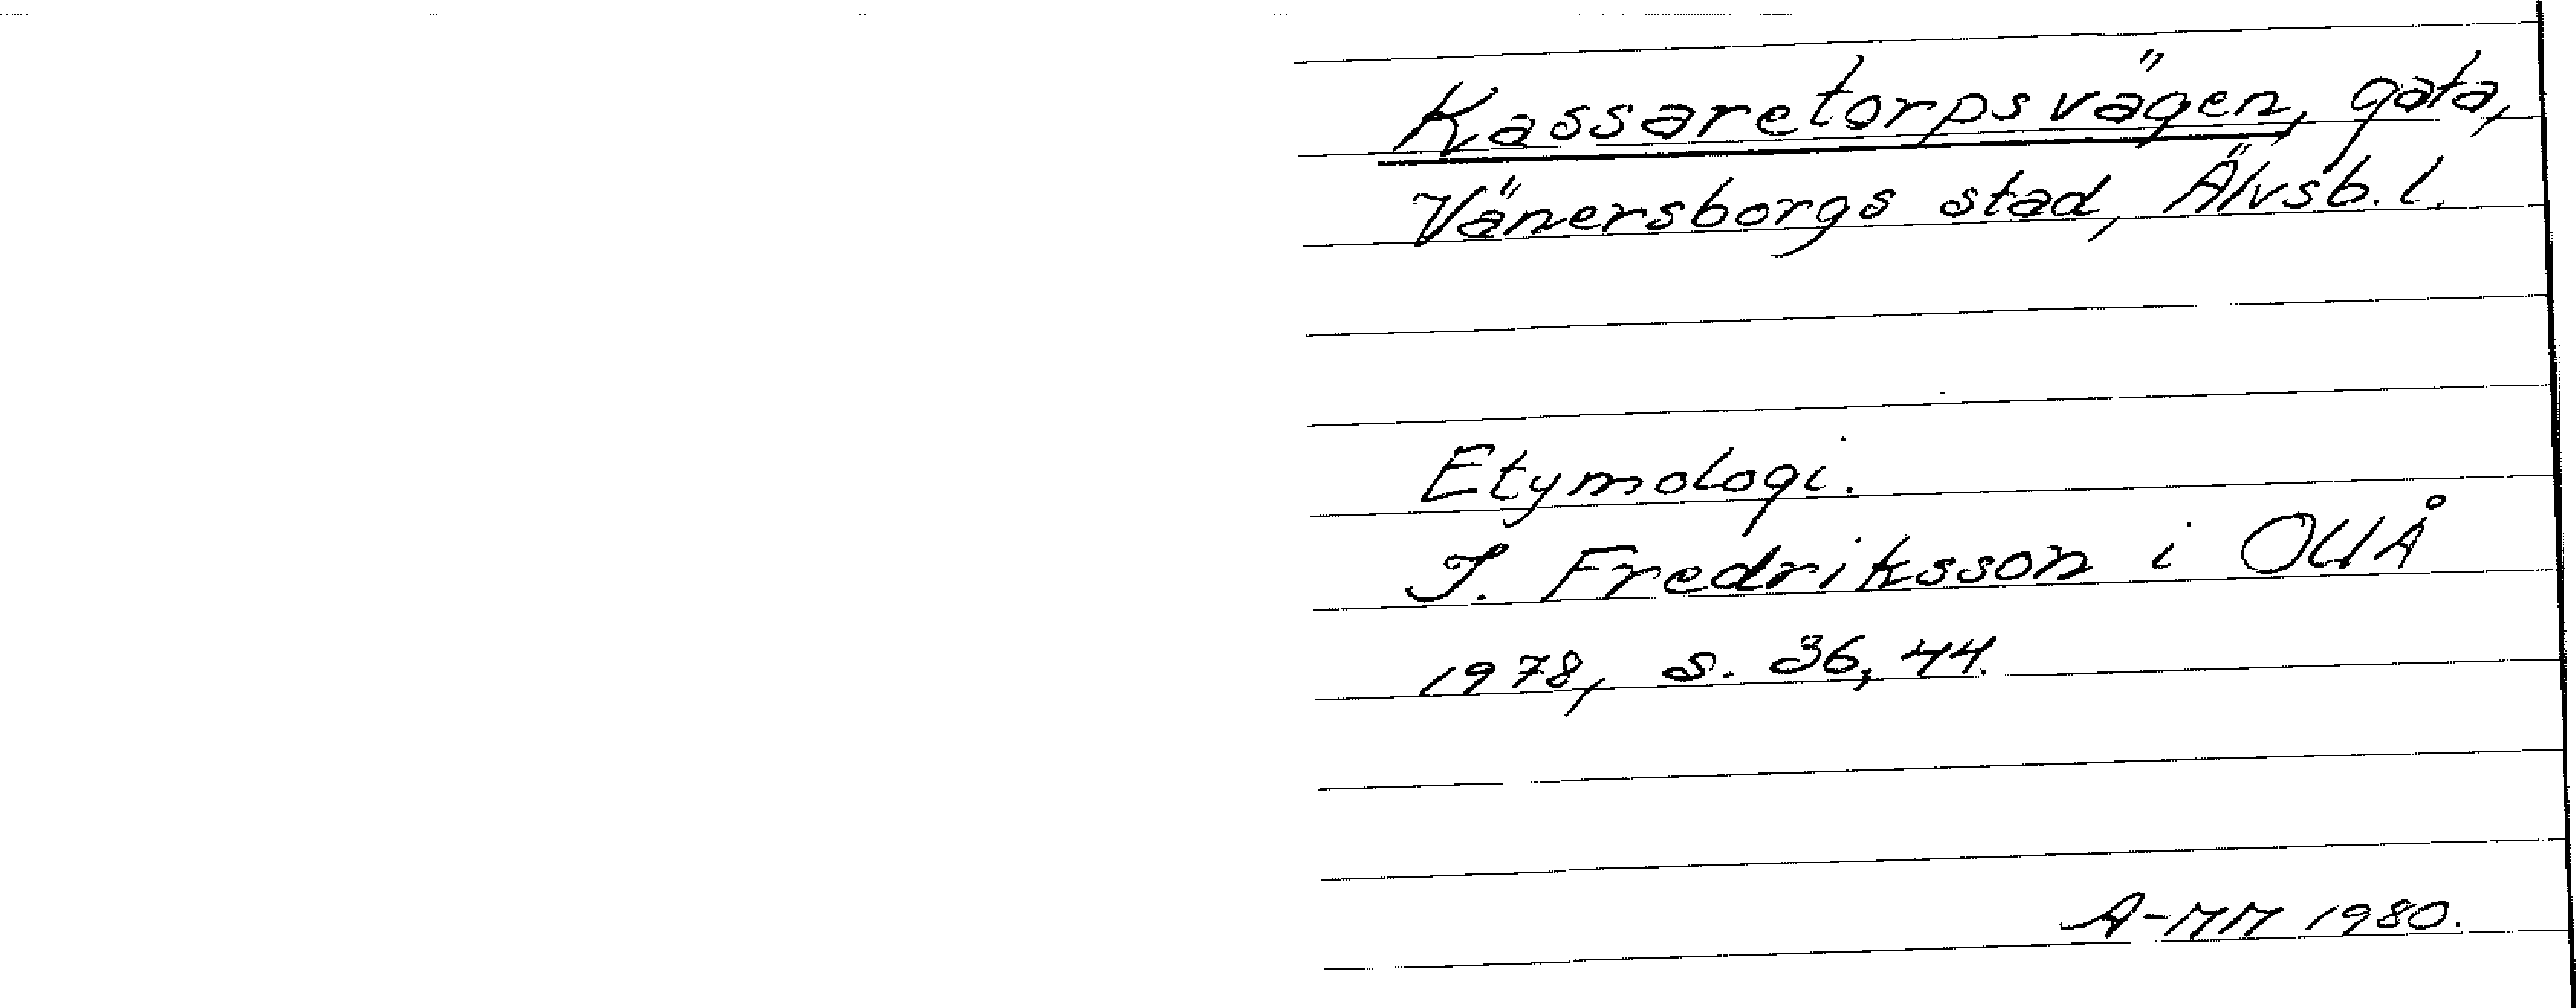 Kassaretorpsvägen, gata,
Vänersborgs stad, Älvsb. l.
Etymologi.
I. Fredriksson i OUÅ
1978, s. 36, 44.
A-MM 1980.